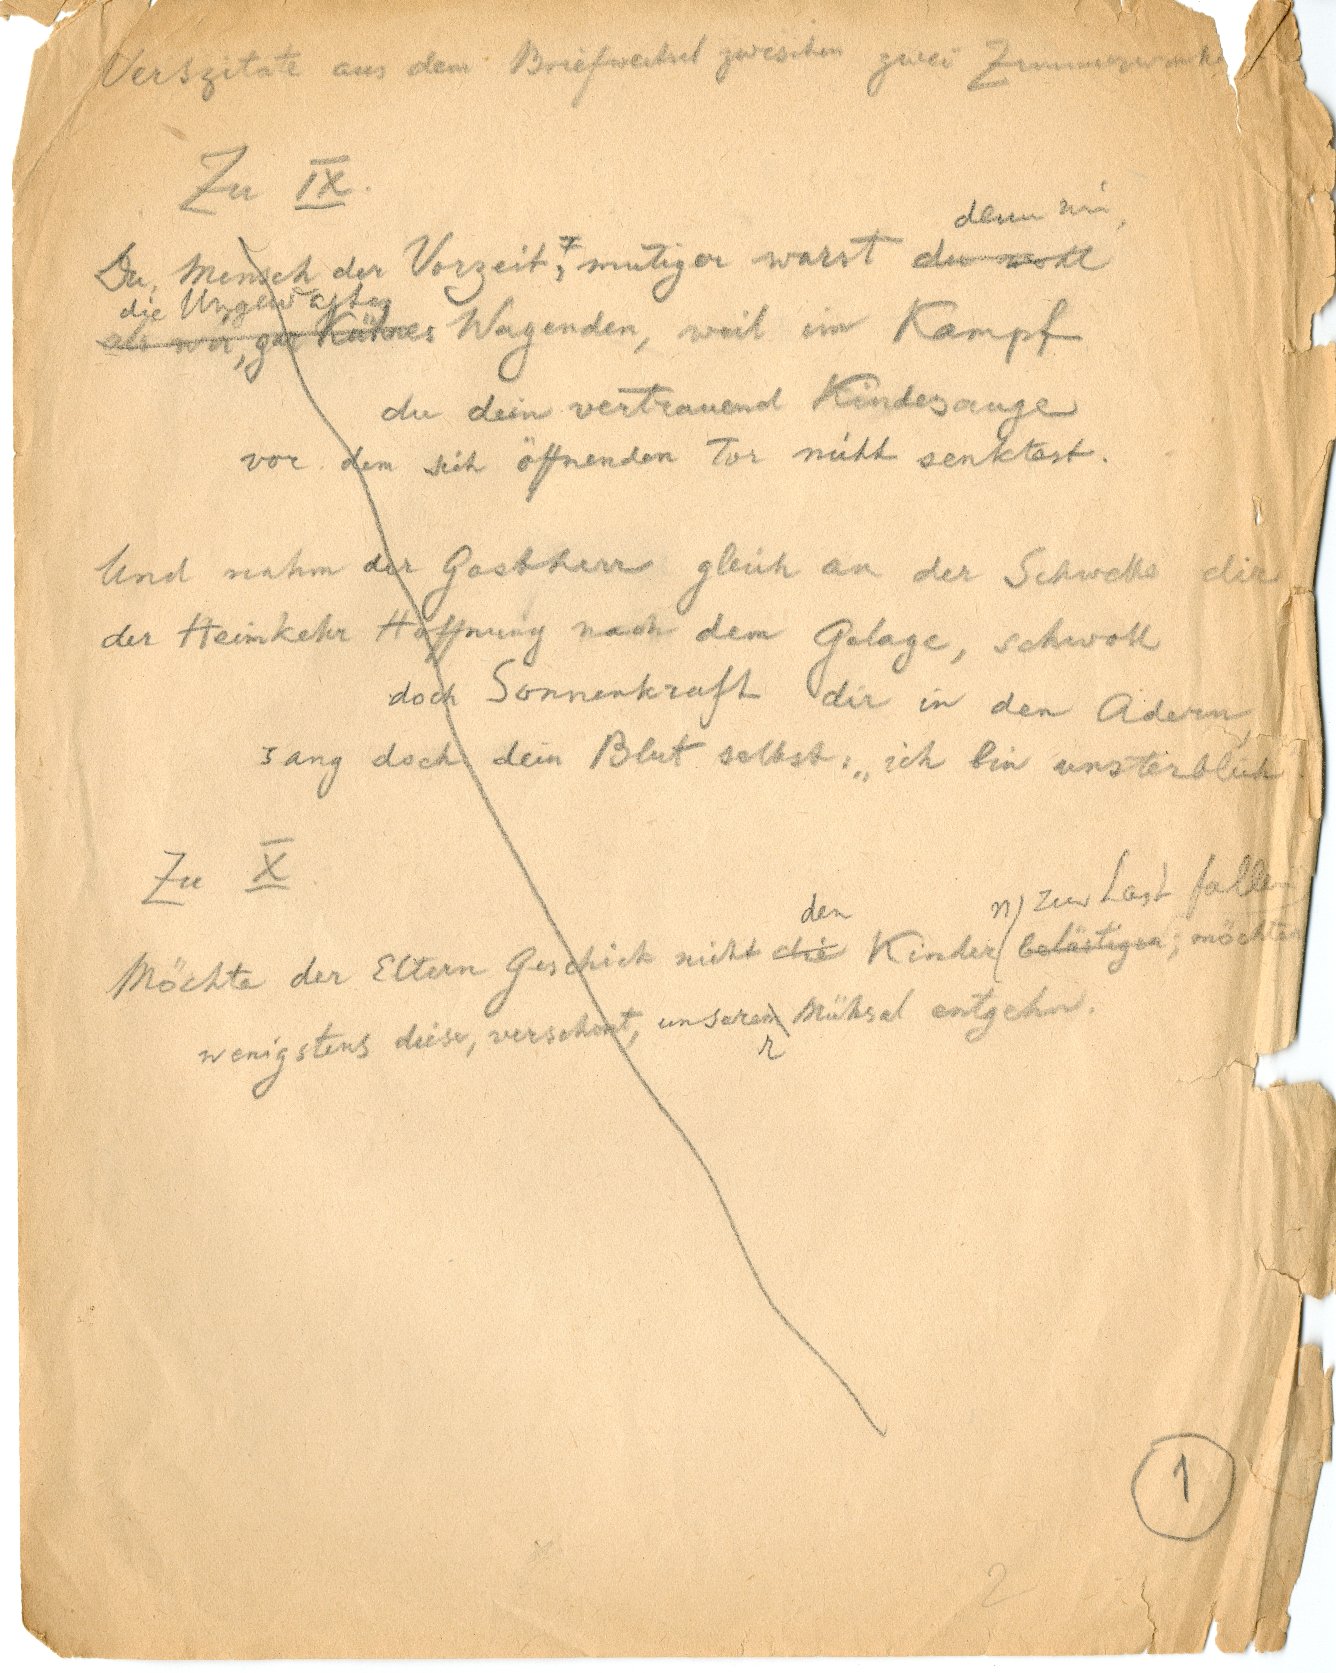 Verszitate aus dem Briefwechsel zwischen zwei
Zu IX.
denn wir,
Du, Mensch der Vorzeit, mutiger warst du wohl
die Urgewalten
als wir, gar Kühnes Wagenden, weil im Kampf
du dein vertrauend Kindesauge
vor dem sich öffnenden Tor nicht senktest.
Und nahm der Gastherr gleich an der Schwelle dir
der Heimkehr Hoffnung nach dem Gelage, schwoll
doch Sonnenkraft dir in den Adern,
sang doch dein Blut selbst: „ich bin unsterblich
Zu X.
den n) zur Last fallen
Möchte der Eltern Geschick nicht die Kinder belästigen; möchten
wenigstens diese, verschont, unserem Mühsal entgehn.
r
1
2